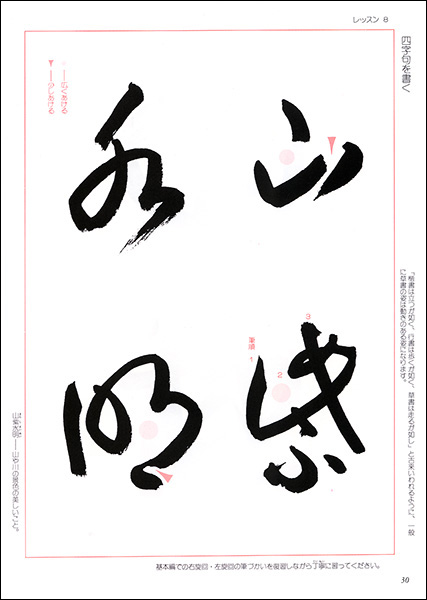 レッスン 8
四字句を書く
「楷書は立つが如く、行書は歩くが如く、草書は走るが如し」と古来いわれるように、一般
に草書の姿は動きのある姿になります。
山紫
水明
筆順 1
2
3
広くあける
少しあける
山紫水明——山や川の景色の美しいこと。
基本編での右旋回・左旋回の筆づかいを復習しながら丁寧に習ってください。
30